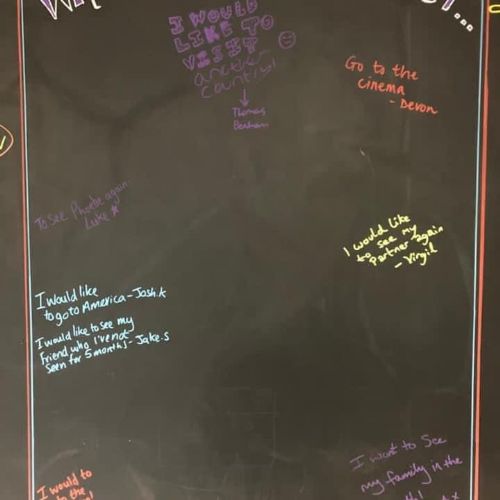 I WOULD
LIKE TO
VISIT
another
country!
Thomas
Benham
Go to the
cinema
- Devon
To see Phoebe again
Luke
I would like
to see my
partner again
- Virgil
I would like
to go to America - Josh.K
I would like to see my
friend who I've not
seen for 5 months - Jake.S
I want to see
my family in the
I would to
to the